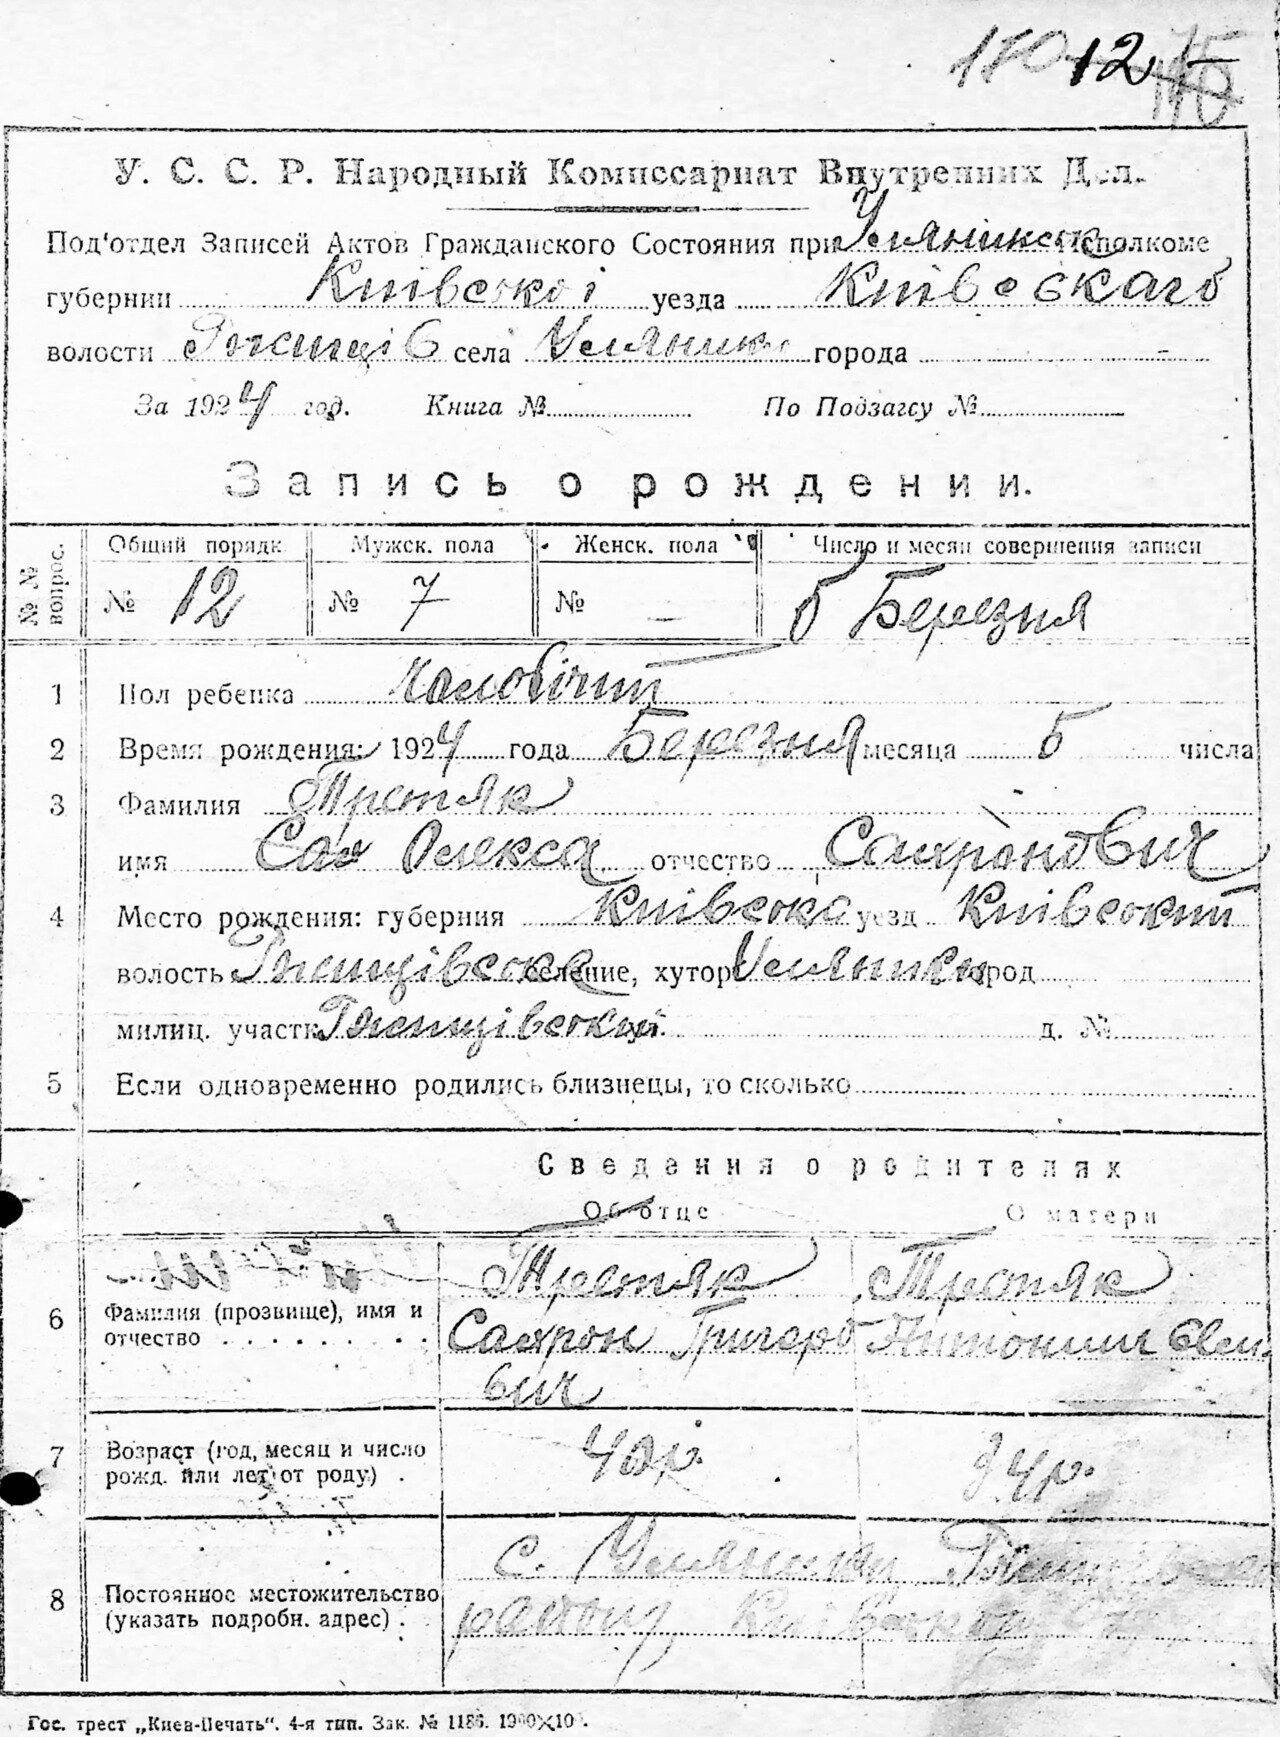 170 12
У. С. С. Р. Народный Комиссариат Внутренних Дел.
Под'отдел Записей Актов Гражданского Состояния при Улянинск исполкоме
губернии Київської уезда Київського
волости Ржищів села Уляники города
За 1924 год. Книга № По Подзагсу №
Запись о рождении.
№ № вопрос. Общий порядк. Мужск. пола Женск. пола Число и месяц совершения записи
№ 12 № 7 № — 5 Березня
1 Пол ребенка Чоловічий
2 Время рождения: 1924 года Березня месяца 5 числа
3 Фамилия Третяк
имя Олекса отчество Сахронович
4 Место рождения: губерния Київська уезд Київський
волость Ржищівська селение, хутор Уляники город
милиц. участк Ржищівський д. №
5 Если одновременно родились близнецы, то сколько
Сведения о родителях
Об отце О матери
6 Фамилия (прозвище), имя и отчество . . . . . . . . .
Третяк Третяк
Сахрон Григоро
вич
7 Возраст (год, месяц и число рожд. или лет от роду) .
42р. 34р.
8 Постоянное местожительство (указать подробн. адрес) .
с. Уляники Ржищівського
району Київської
Гос. трест „Киев-Печать". 4-я тип. Зак. № 1186.